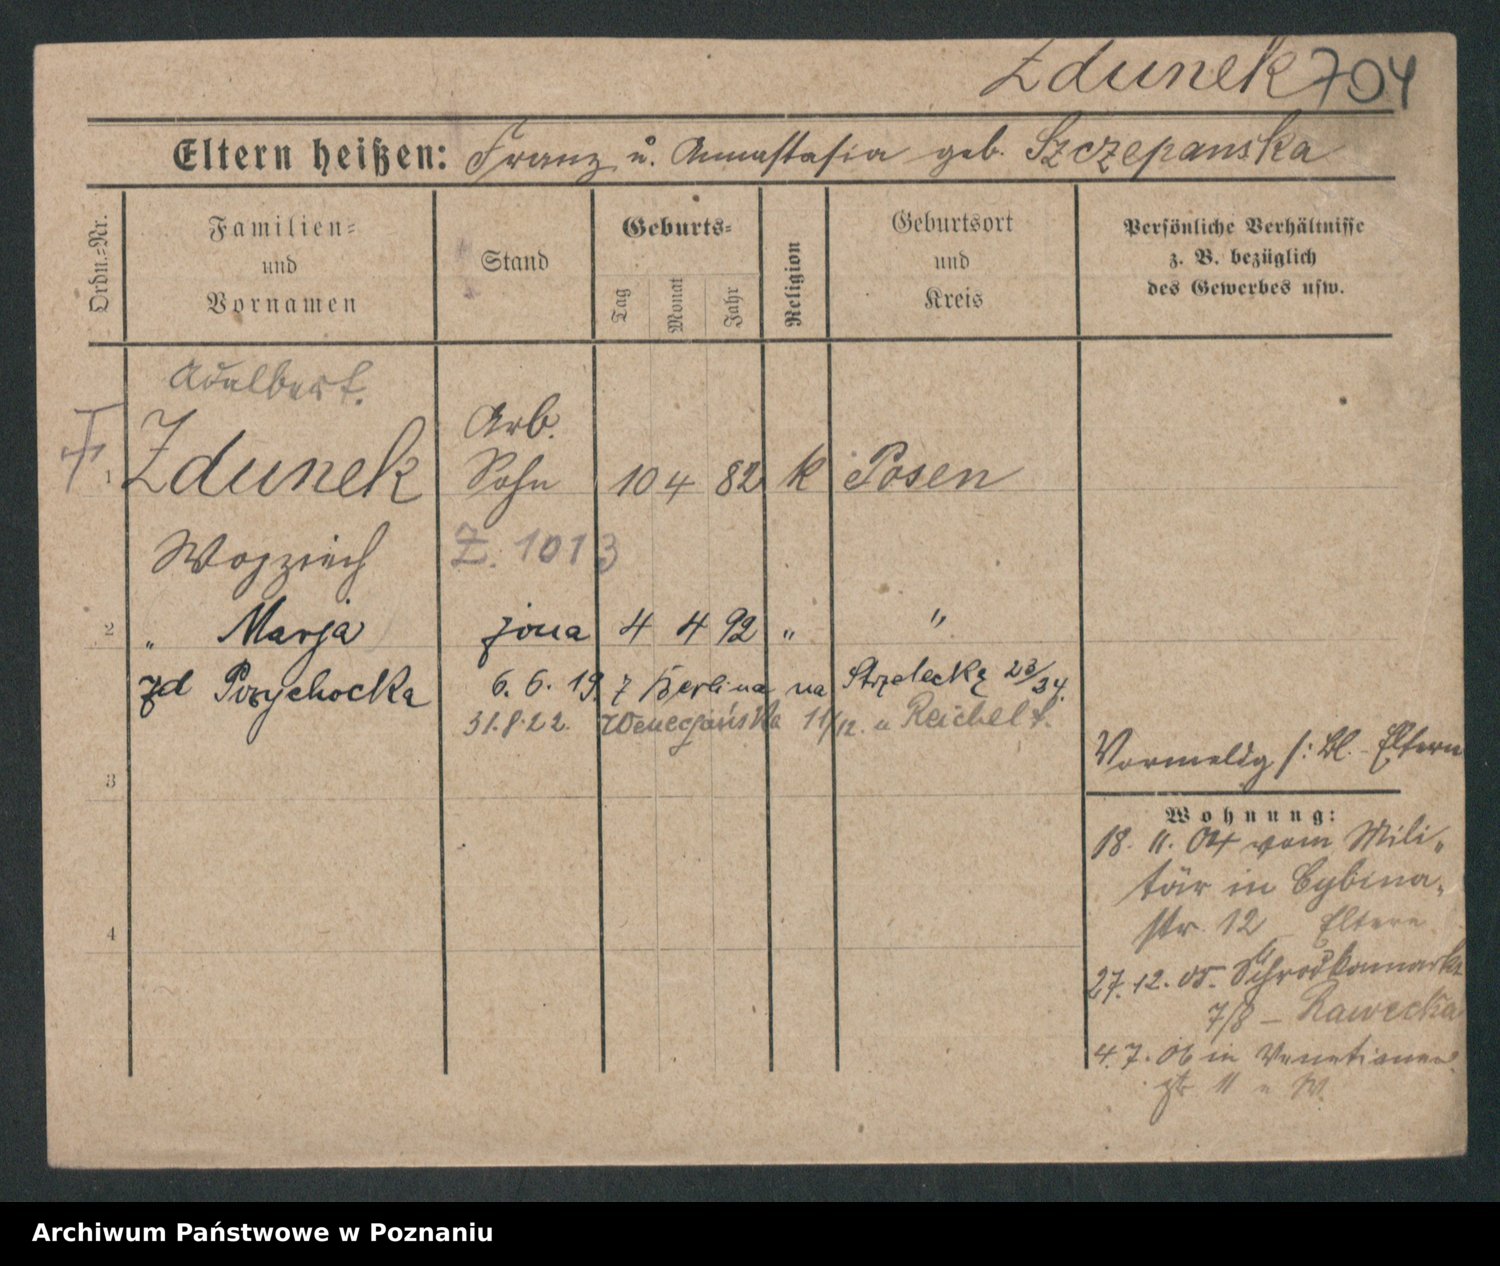 Zdunek 704
Eltern heißen: Franz u. Annastasia geb. Szczepanska
Ordn.=Nr.
Familien=
und
Vornamen
Stand
Geburts=
Tag
Monat
Jahr
Religion
Geburtsort
und
Kreis
Persönliche Verhältnisse
z. B. bezüglich
des Gewerbes usw.
Adalbert.
Arb.
1 Zdunek Sohn 10 4 82 k Posen
Wojziech Z. 1013
2 " Marja żona 4 4 92 " "
zd 6. 6. 19. z Berlina na Strzelecką 23/34.
31.8.22. Wenecjańska 11/12. u Reichelt.
3
Vormeldg s: Bl. Eltern
Wohnung:
18. 11. 04 vom Mili=
tär in Cybina=
str. 12 Eltern
4
27. 12. 05. Schrodkamarkt
7/8 – Rawecka
4. 7. 06 in Venetianer
str 11
Archiwum Państwowe w Poznaniu